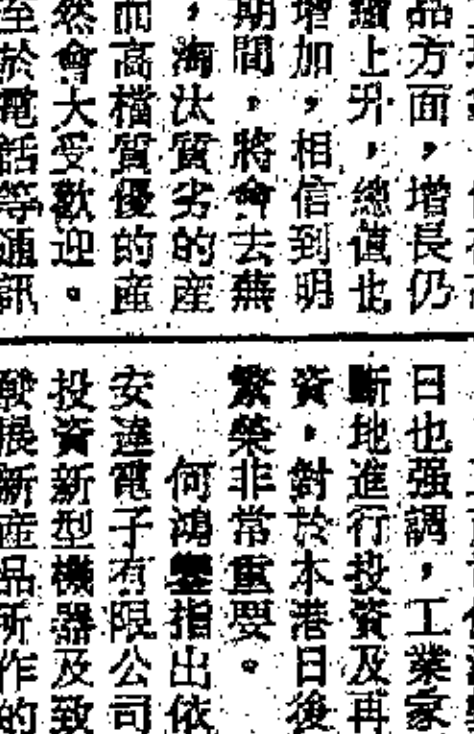 品方面，增長仍
續上升，總值也
增加，相信到明
期間，將會去蕪
，淘汰質劣的産
而高檔質優的産
然會大受歡迎。
至於電話等通訊
日也强調，工業家
斷地進行投資及再
資，對於本港日後
繁榮非常重要。
何鴻鑾指出依
安達電子有限公司
投資新型機器及致
發展新産品所作的